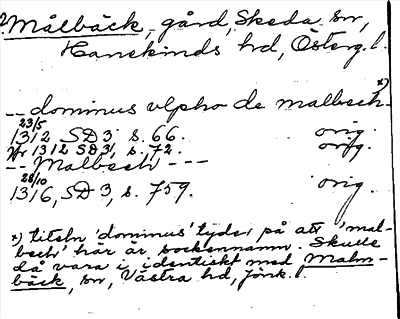 Målbäck, gård, Skeda sn,
Hanekinds hd, Österg. l.
x)
-- dominus vlpho de malbech -
23/5
1312 SD 3 s. 66. orig.
Nr 1312 SD 3, s. 72. orig.
-- Malbech ---
28/10
1316, SD 3, s. 759. orig.
x) titeln 'dominus' tyder på att 'mal-
bech' här är sockennamn. Skulle
då vara i identiskt med Malm-
bäck, sn, Västra hd, Jönk. l.